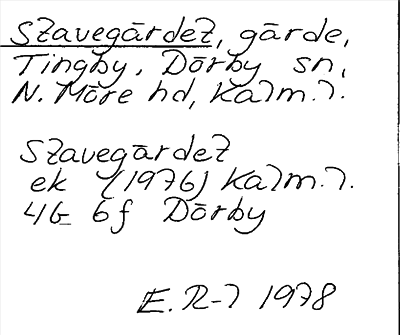 Stavegärdet, gärde,
Tingby, Dörby sn,
N. Möre hd, Kalm.l.
Stavegärdet
ek (1976) Kalm.l.
4G 6f Dörby
E. R-l 1978